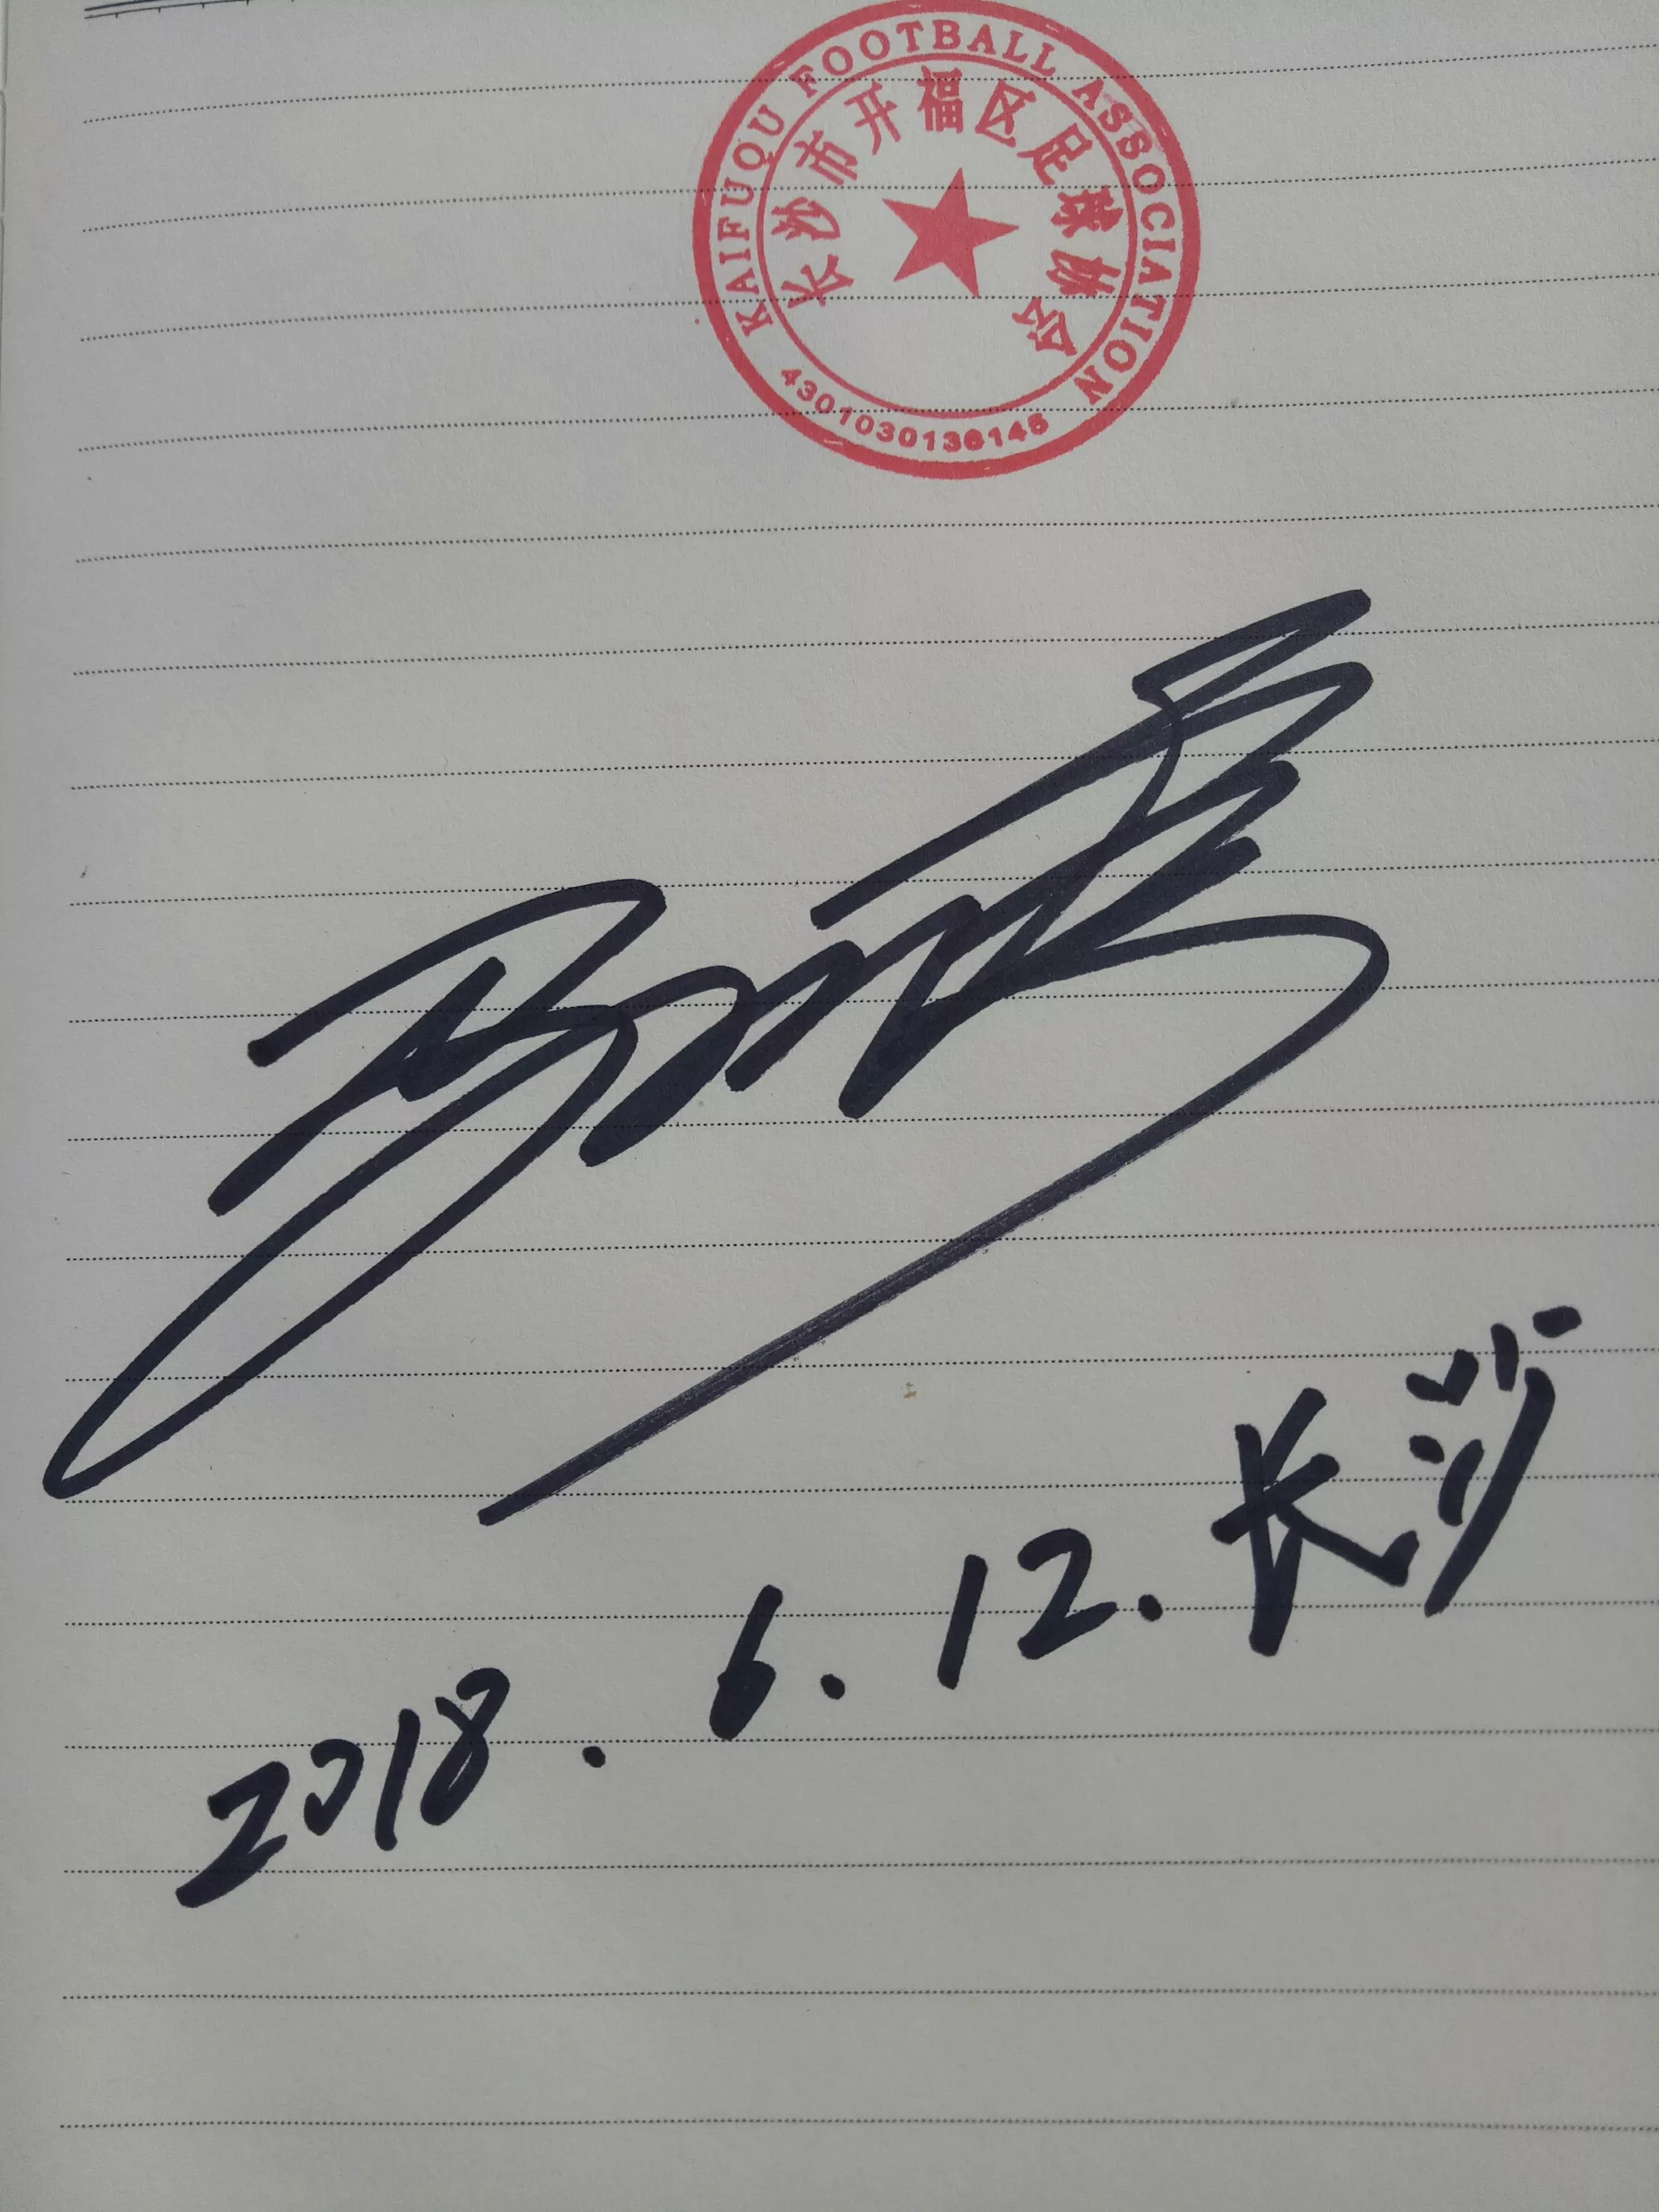 KAIFUQU FOOTBALL ASSOCIATION
长沙市开福区足球协会
4301030136145
2018.6.12.长沙